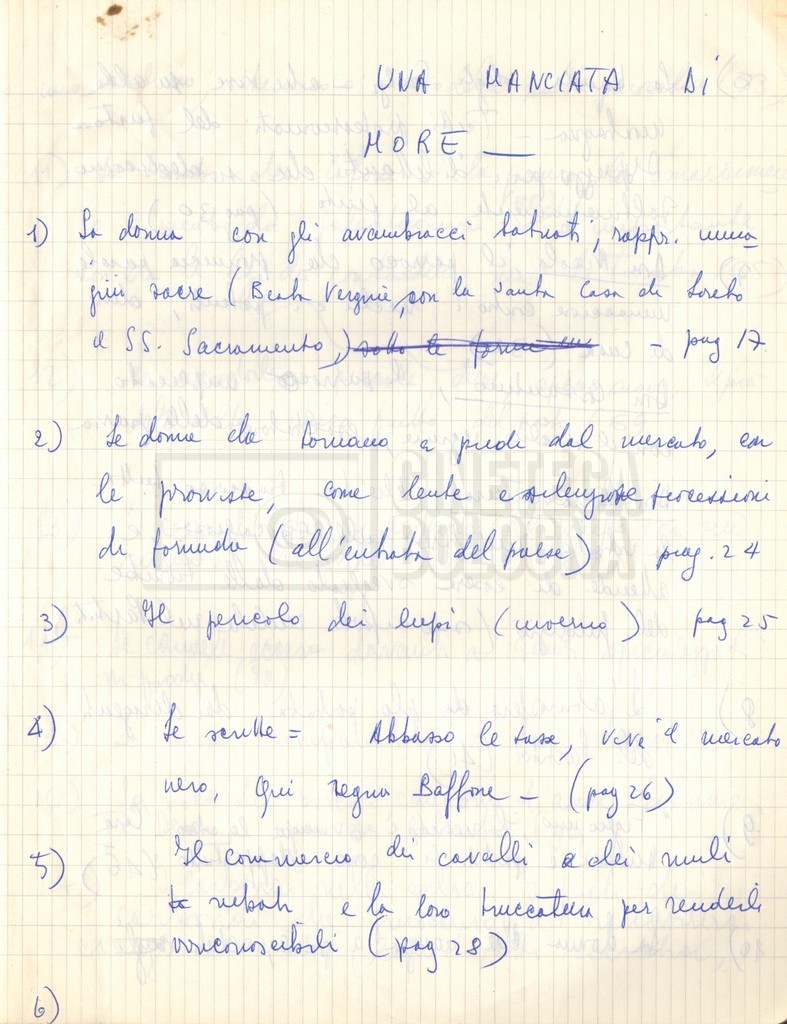 UNA MANCIATA DI
MORE —
1) La donna con gli avambracci tatuati, rappr. imma
gini sacre (Beata Vergine, con la Santa Casa di Loreto
il SS. Sacramento,) sotto le forme — pag 17
2) Le donne che tornano a piedi dal mercato, con
le provviste, come lente e silenziose processioni
di formiche (all'entrata del paese) pag. 24
3) Il pericolo dei lupi (inverno) pag 25
4) Le scritte = Abbasso le tasse, viva il mercato
nero, Qui regna Baffone — (pag 26)
5) Il commercio dei cavalli e dei muli
rubati e la loro truccatura per renderli
irriconoscibili (pag 28)
6)
CINETECA
BOLOGNA